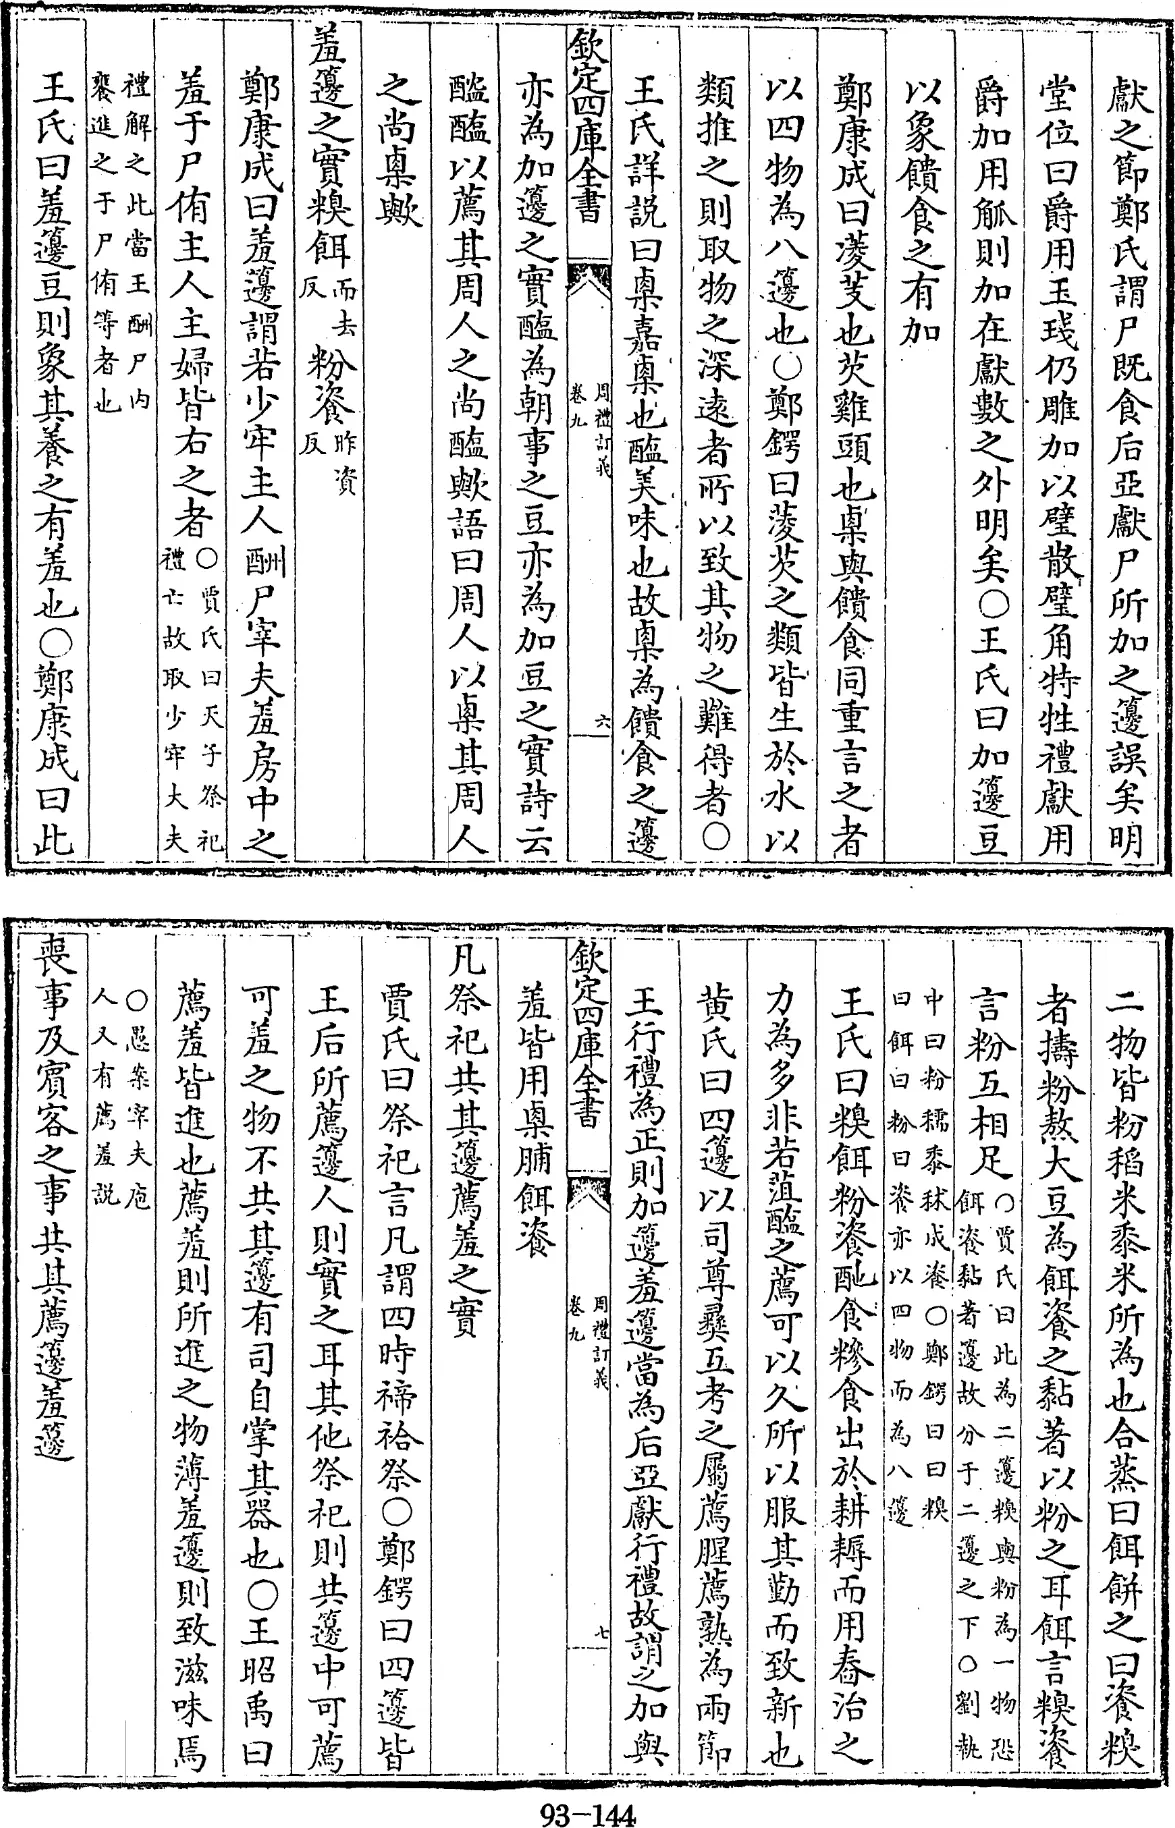 獻之節鄭氏謂尸既食后亞獻尸所加之籩誤矣明
堂位曰爵用玉琖仍雕加以璧散璧角特牲禮獻用
爵加用觚則加在獻數之外明矣○王氏曰加籩豆
以象饋食之有加
鄭康成曰蔆芰也芡雞頭也㮚與饋食同重言之者
以四物為八籩也○鄭鍔曰蔆芡之類皆生於水以
類推之則取物之深遠者所以致其物之難得者○
王氏詳説曰㮚嘉㮚也醢美味也故㮚為饋食之籩
欽定四庫全書
周禮訂義
卷九
六
亦為加籩之實醢為朝事之豆亦為加豆之實詩云
醓醢以薦其周人之尚醢歟語曰周人以㮚其周人
之尚㮚歟
羞籩之實糗餌而去反粉餈昨資反
鄭康成曰羞籩謂若少牢主人酬尸宰夫羞房中之
羞于尸侑主人主婦皆右之者○賈氏曰天子祭祀禮亡故取少牢大夫
禮解之此當王酬尸内饔進之于尸侑等者也
王氏曰羞籩豆則象其養之有羞也○鄭康成曰此
二物皆粉稻米黍米所為也合蒸曰餌餅之曰餈糗
者擣粉熬大豆為餌餈之黏著以粉之耳餌言糗餈
言粉互相足○賈氏曰此為二籩糗與粉為一物恐餌餈黏著籩故分于二籩之下○劉執
中曰粉糯黍秫成餈○鄭鍔曰曰糗曰餌曰粉曰餈亦以四物而為八籩
王氏曰糗餌粉餈酏食糝食出於耕耨而用舂治之
力為多非若菹醢之薦可以久所以服其勤而致新也
黄氏曰四籩以司尊彝互考之屬薦腥薦熟為兩節
王行禮為正則加籩羞籩當為后亞獻行禮故謂之加與
欽定四庫全書
周禮訂義
卷九
七
羞皆用㮚脯餌餈
凡祭祀共其籩薦羞之實
賈氏曰祭祀言凡謂四時禘祫祭○鄭鍔曰四籩皆
王后所薦籩人則實之耳其他祭祀則共籩中可薦
可羞之物不共其籩有司自掌其器也○王昭禹曰
薦羞皆進也薦羞則所進之物薄羞籩則致滋味焉
○愚案宰夫庖人又有薦羞説
喪事及賓客之事共其薦籩羞籩
93-144